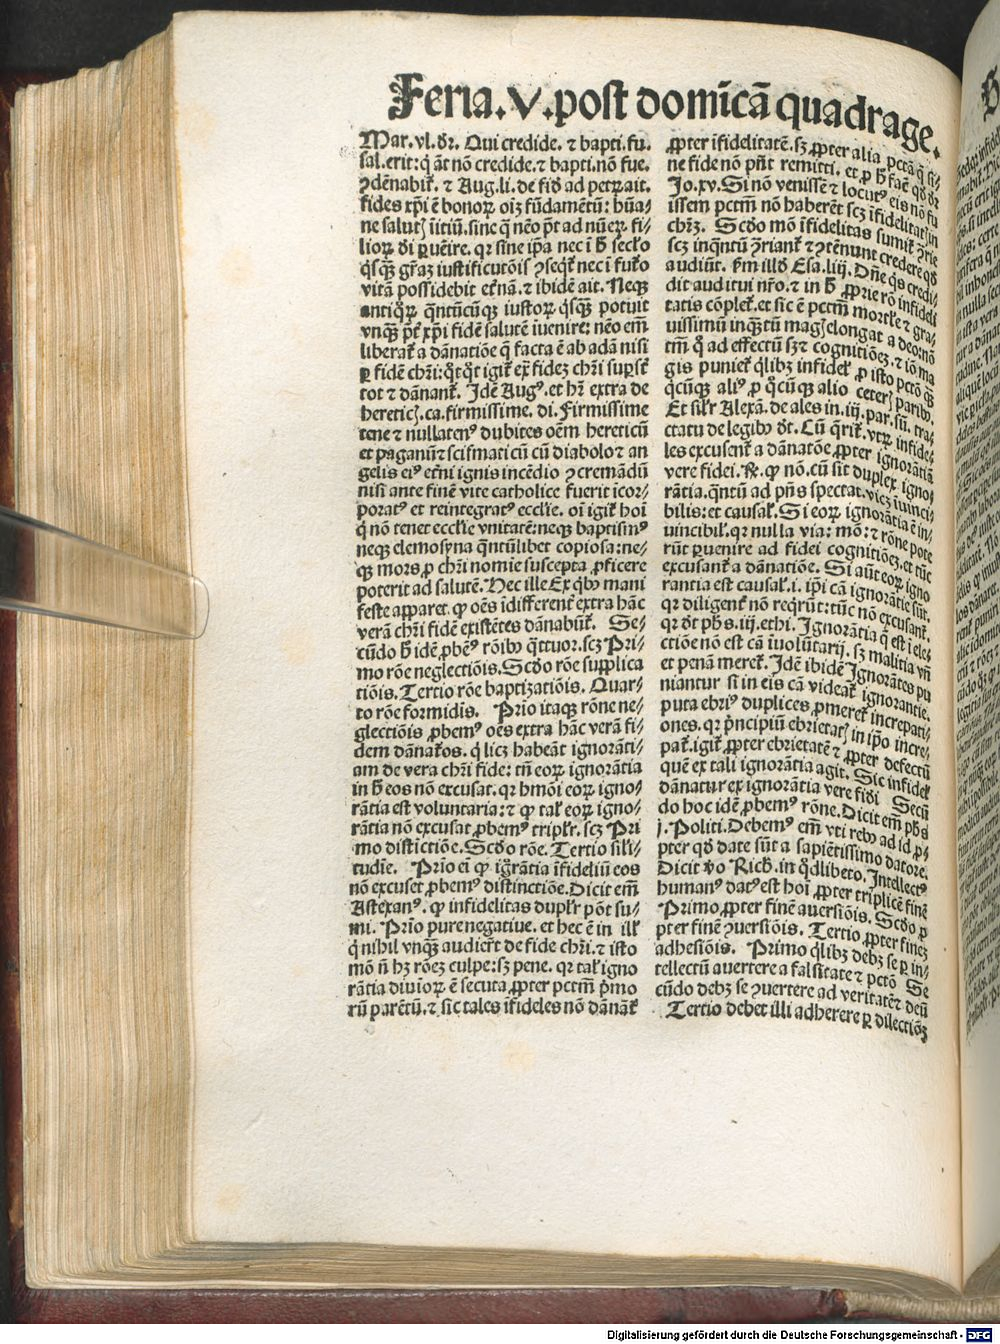 Feria.V.post domīcā quadrage.
Mar. vl. dr̄. Qui credide. ⁊ bapti. fu.
sal. erit: q̄ āt nō credide. ⁊ bapti. nō fue.
ꝯdēnabit̄. ⁊ Aug. li. de fid̄ ad petꝝ ait.
fides xp̄i ē bonoꝝ oīz fūdamētū: hūa⸗
ne salutꝭ īitiū. sine q̄ nēo pōt ad nūeꝝ fi⸗
lioꝝ dī ꝑuēire. qꝛ sine ip̄a nec ī h̄ secl̄o
q̄sqꝫ gr̄aꝫ iustificatōis ꝯseqt̄ nec ī futo
vitā possidebit et̄nā. ⁊ ibidē ait. Neqꝫ
antiq̄ꝝ q̄ntūcūqꝫ iustoꝝ q̄sqꝫ potuit
vnqꝫ pt̄ xp̄i fidē salutē īuenire: nēo em̄
liberat̄ a dānatiōe q̄ facta ē ab adā nisi
ꝑ fidē chr̄i: q̄tq̄t igit̄ ex̄ fideꝫ chr̄i suꝑst̄
tot ⁊ dānant̄. Idē Augꝰ. et hr̄ extra de
hereticꝭ. ca. firmissime. di. Firmissime
tene ⁊ nullatenꝰ dubites oēm hereticū
et paganū ⁊ scismaticū cū diabolo ⁊ an
gelis eiꝰ et̄ni ignis incēdio ꝯcremādū
nisi ante finē vite catholice fuerit īcor⸗
poratꝰ et reintegratꝰ eccl̄ie. oī igit̄ hoī
q̄ nō tenet eccl̄ie vnitatē: neqꝫ baptismꝰ
neqꝫ elemosyna q̄ntūlibet copiosa: ne⸗
qꝫ mors ꝓ chr̄i nomie suscepta ꝓficere
poterit ad salutē. Hec ille Ex qͥbꝰ mani
feste apparet. ꝙ oēs īdifferent̄ extra hāc
verā chr̄i fidē existētes dānabūt̄. Se⸗
cūdo h̄ idē ꝓbēꝰ rōibꝰ q̄ttuor. scꝫ Pri⸗
mo rōe neglectiōis. Scd̄o rōe supplica
tiōis. Tertio rōe baptizatiōis. Quar⸗
to rōe formidis. Prīo itaqꝫ rōne ne⸗
glectiōis ꝓbemꝰ oēs extra hāc verā fi⸗
dem dānatos. q̄ licꝫ habeāt ignorāti⸗
am de vera chr̄i fide: tn̄ eoꝝ ignorātia
in h̄ eos nō excusat. qꝛ hm̄oi eoꝝ igno⸗
rātia est voluntaria: ⁊ ꝙ tal̄ eoꝝ igno⸗
rātia nō excusat ꝓbemꝰ triplr̄. scꝫ Pri
mo distictiōe. Scd̄o rōe. Tertio sili⸗
tudīe. Prīo ei ꝙ igr̄ātia īfideliū eos
nō excuset ꝓbemꝰ distinctiōe. Dicit em̄
Astexanꝰ. ꝙ infidelitas duplr̄ pōt su⸗
mi. Prīo pure negatiue. et hec ē in ill̄
q̄ nihil vnqꝫ audiert̄ de fide chr̄i. ⁊ isto
mō n̄ hꝫ rōeꝫ culpe: sꝫ pene. qꝛ tal̄ igno
rātia diuīoꝝ ē secuta ꝓpter pctm̄ pͥmo
rū parētū. ⁊ sic tales īfideles nō dānāt̄
ꝓpter īfidelitatē. sꝫ ꝓpter alia pctā q̄ si⸗
ne fide nō pn̄t remitti. et ꝓ h̄ faē qd̄ dr̄
Jo. xv. Si nō venissē ⁊ locutꝰ eis nō fu
issem pctm̄ nō haberēt scꝫ īfidelitatꝭ in
chr̄ꝫ. Scd̄o mō īfidelitas sumit̄ ꝯrīe
scꝫ inq̄ntū ꝯriant̄ ⁊ ꝯtēnunt credere qd̄
audiūt. ẜm illd̄ Esa. liij. Dn̄e qͥs credi⸗
dit auditui nr̄o. ⁊ in h̄ ꝓprie rō infideli
tatis cōplet̄. et sic ē pctm̄ mortl̄e ⁊ gra⸗
uissimū inq̄tū magꝭ elongat a deo: nō
tm̄ q̄ ad effectū sꝫ ⁊ cognitiōeꝫ. ⁊ iō ma
gis puniet̄ qͥlibꝫ infidel̄ ꝓ isto pctō qꝫ
q̄cūqꝫ aliꝰ ꝓ q̄cūqꝫ alio ceterꝭ paribꝰ.
Et silr̄ Alexā. de ales in. iij. par. sū. tra⸗
ctatu de legibꝰ dt̄. Cū q̄rit̄. vtꝝ infide⸗
les excusent̄ a dānatōe ꝓpter ignorātiā
vere fidei. R̄. ꝙ nō. cū sit duplex igno⸗
rātia. q̄ntū ad pn̄s spectat. vicꝫ īuinci⸗
bilis: et causal̄. Si eoꝝ ignorātia ē in⸗
uincibil̄. qꝛ nulla via: mō: ⁊ rōne pote
rūt ꝑuenire ad fidei cognitiōeꝫ. et tūc
excusant̄ a dānatiōe. Si aūt eoꝝ igno
rantia est causal̄. i. ip̄i cā ignorātie sūt.
qꝛ diligent̄ nō reqͥrūt: tūc nō excusant̄.
qꝛ dt̄ ph̄s. iij. ethi. Ignorātia q̄ est ī ele⸗
ctiōe nō est cā īuolūtarij. sꝫ malitia vn̄
et penā meret̄. Idē ibidē Ignorātes pu
niantur si in eis cā videat̄ ignorantie.
puta ebriꝰ duplices ꝓmeret̄ increpati⸗
ones. qꝛ pͥncipiū ebrietatꝭ in ip̄o incre⸗
pat̄. igit̄ ꝓpter ebrietatē ⁊ ꝓpter defectū
quē ex tali ignorātia agit. Sic infidel̄
dānatur ex ignorātia vere fidi Secū
do hoc idē ꝓbemꝰ rōne. Dicit em̄ ph̄s
j. Politi. Debemꝰ em̄ vti rebꝰ ad id ꝓ⸗
pter qd̄ date sūt a sapiētissimo datore.
Dicit ꝟo Rich̄. in qd̄libeto. Intellectꝰ
humanꝰ datꝰ est hoī ꝓpter triplicē finē
Primo ꝓpter finē auersiōis. Scd̄o ꝓ
pter finē ꝯuersiōis. Tertio ꝓpter fineꝫ
adhesiōis. Primo qͥlibꝫ debꝫ se ꝑ in⸗
tellectū auertere a falsitate ⁊ pctō Se
cūdo debꝫ se ꝯuertere ad veritatē ⁊ deū
Tertio debet illi adherere ꝑ dilectiōeꝫ
Digitalisierung gefördert durch die Deutsche Forschungsgemeinschaft - DFG